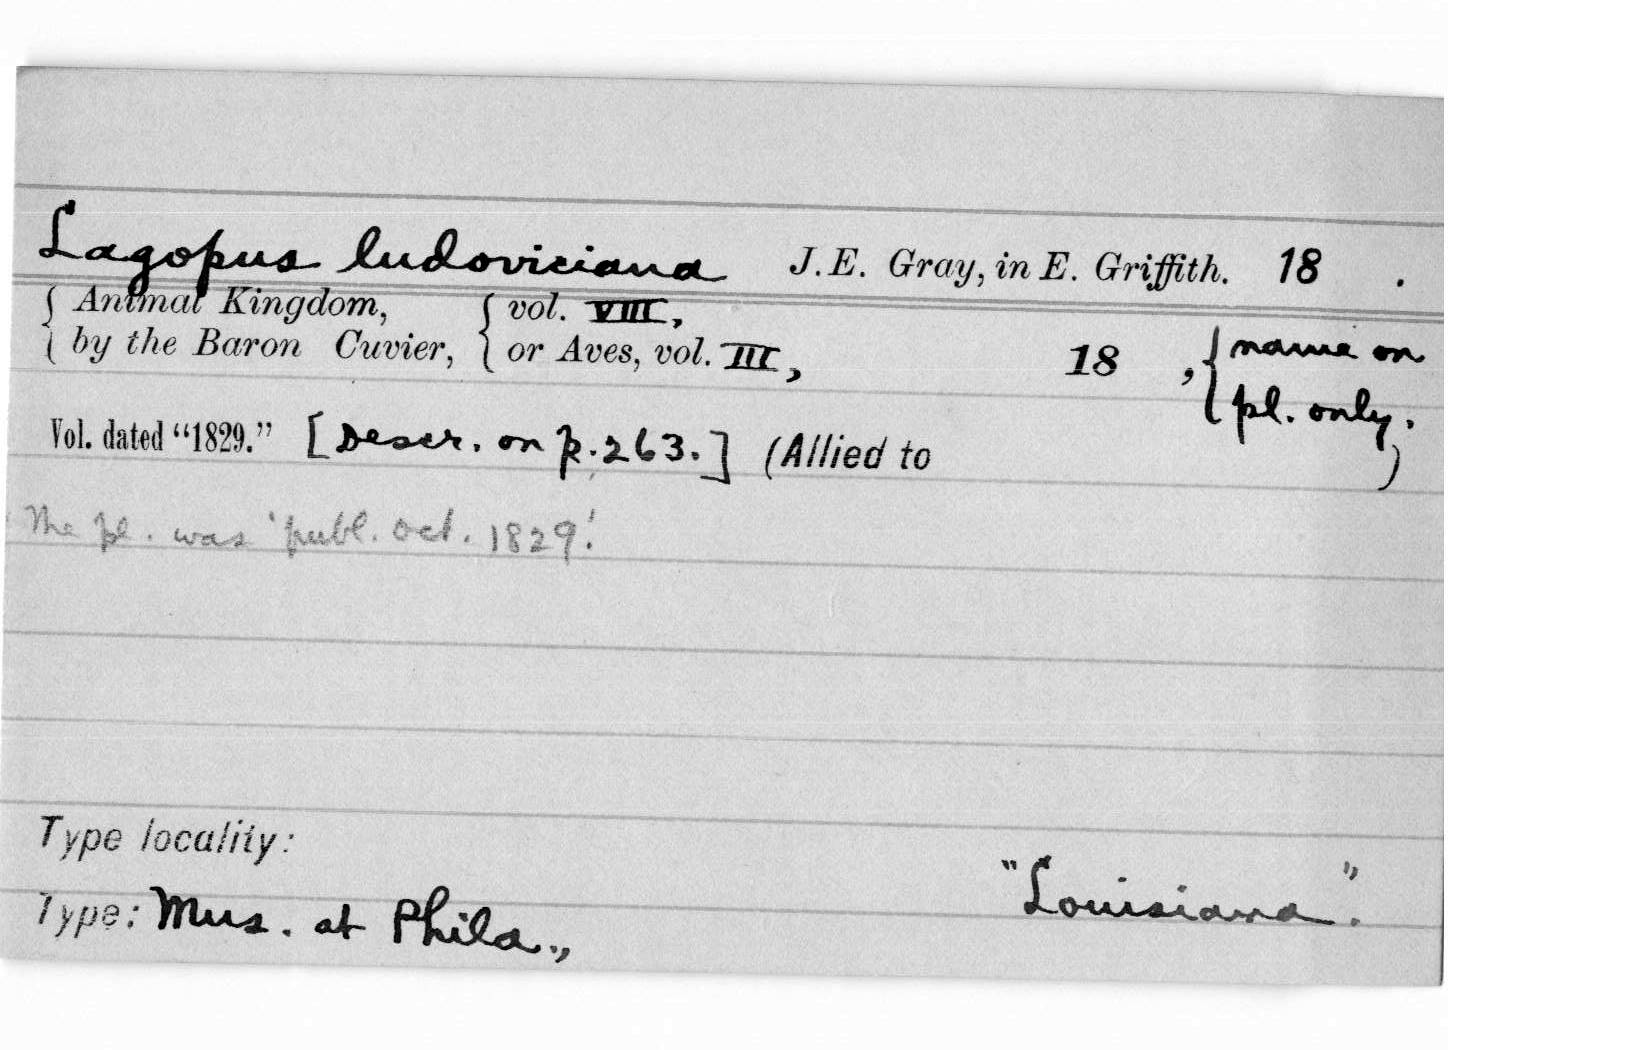 Lagopus ludoviciana J.E. Gray, in E. Griffith. 18 .
{ Animal Kingdom, { vol. VIII,
{ by the Baron Cuvier, { or Aves, vol. III, 18 , { name on
pl. only.
Vol. dated “1829.” [Descr. on p. 263.] (Allied to )
The pl. was 'publ. Oct. 1829.'
Type locality:
"Louisiana".
Type: Mus. at Phila.,